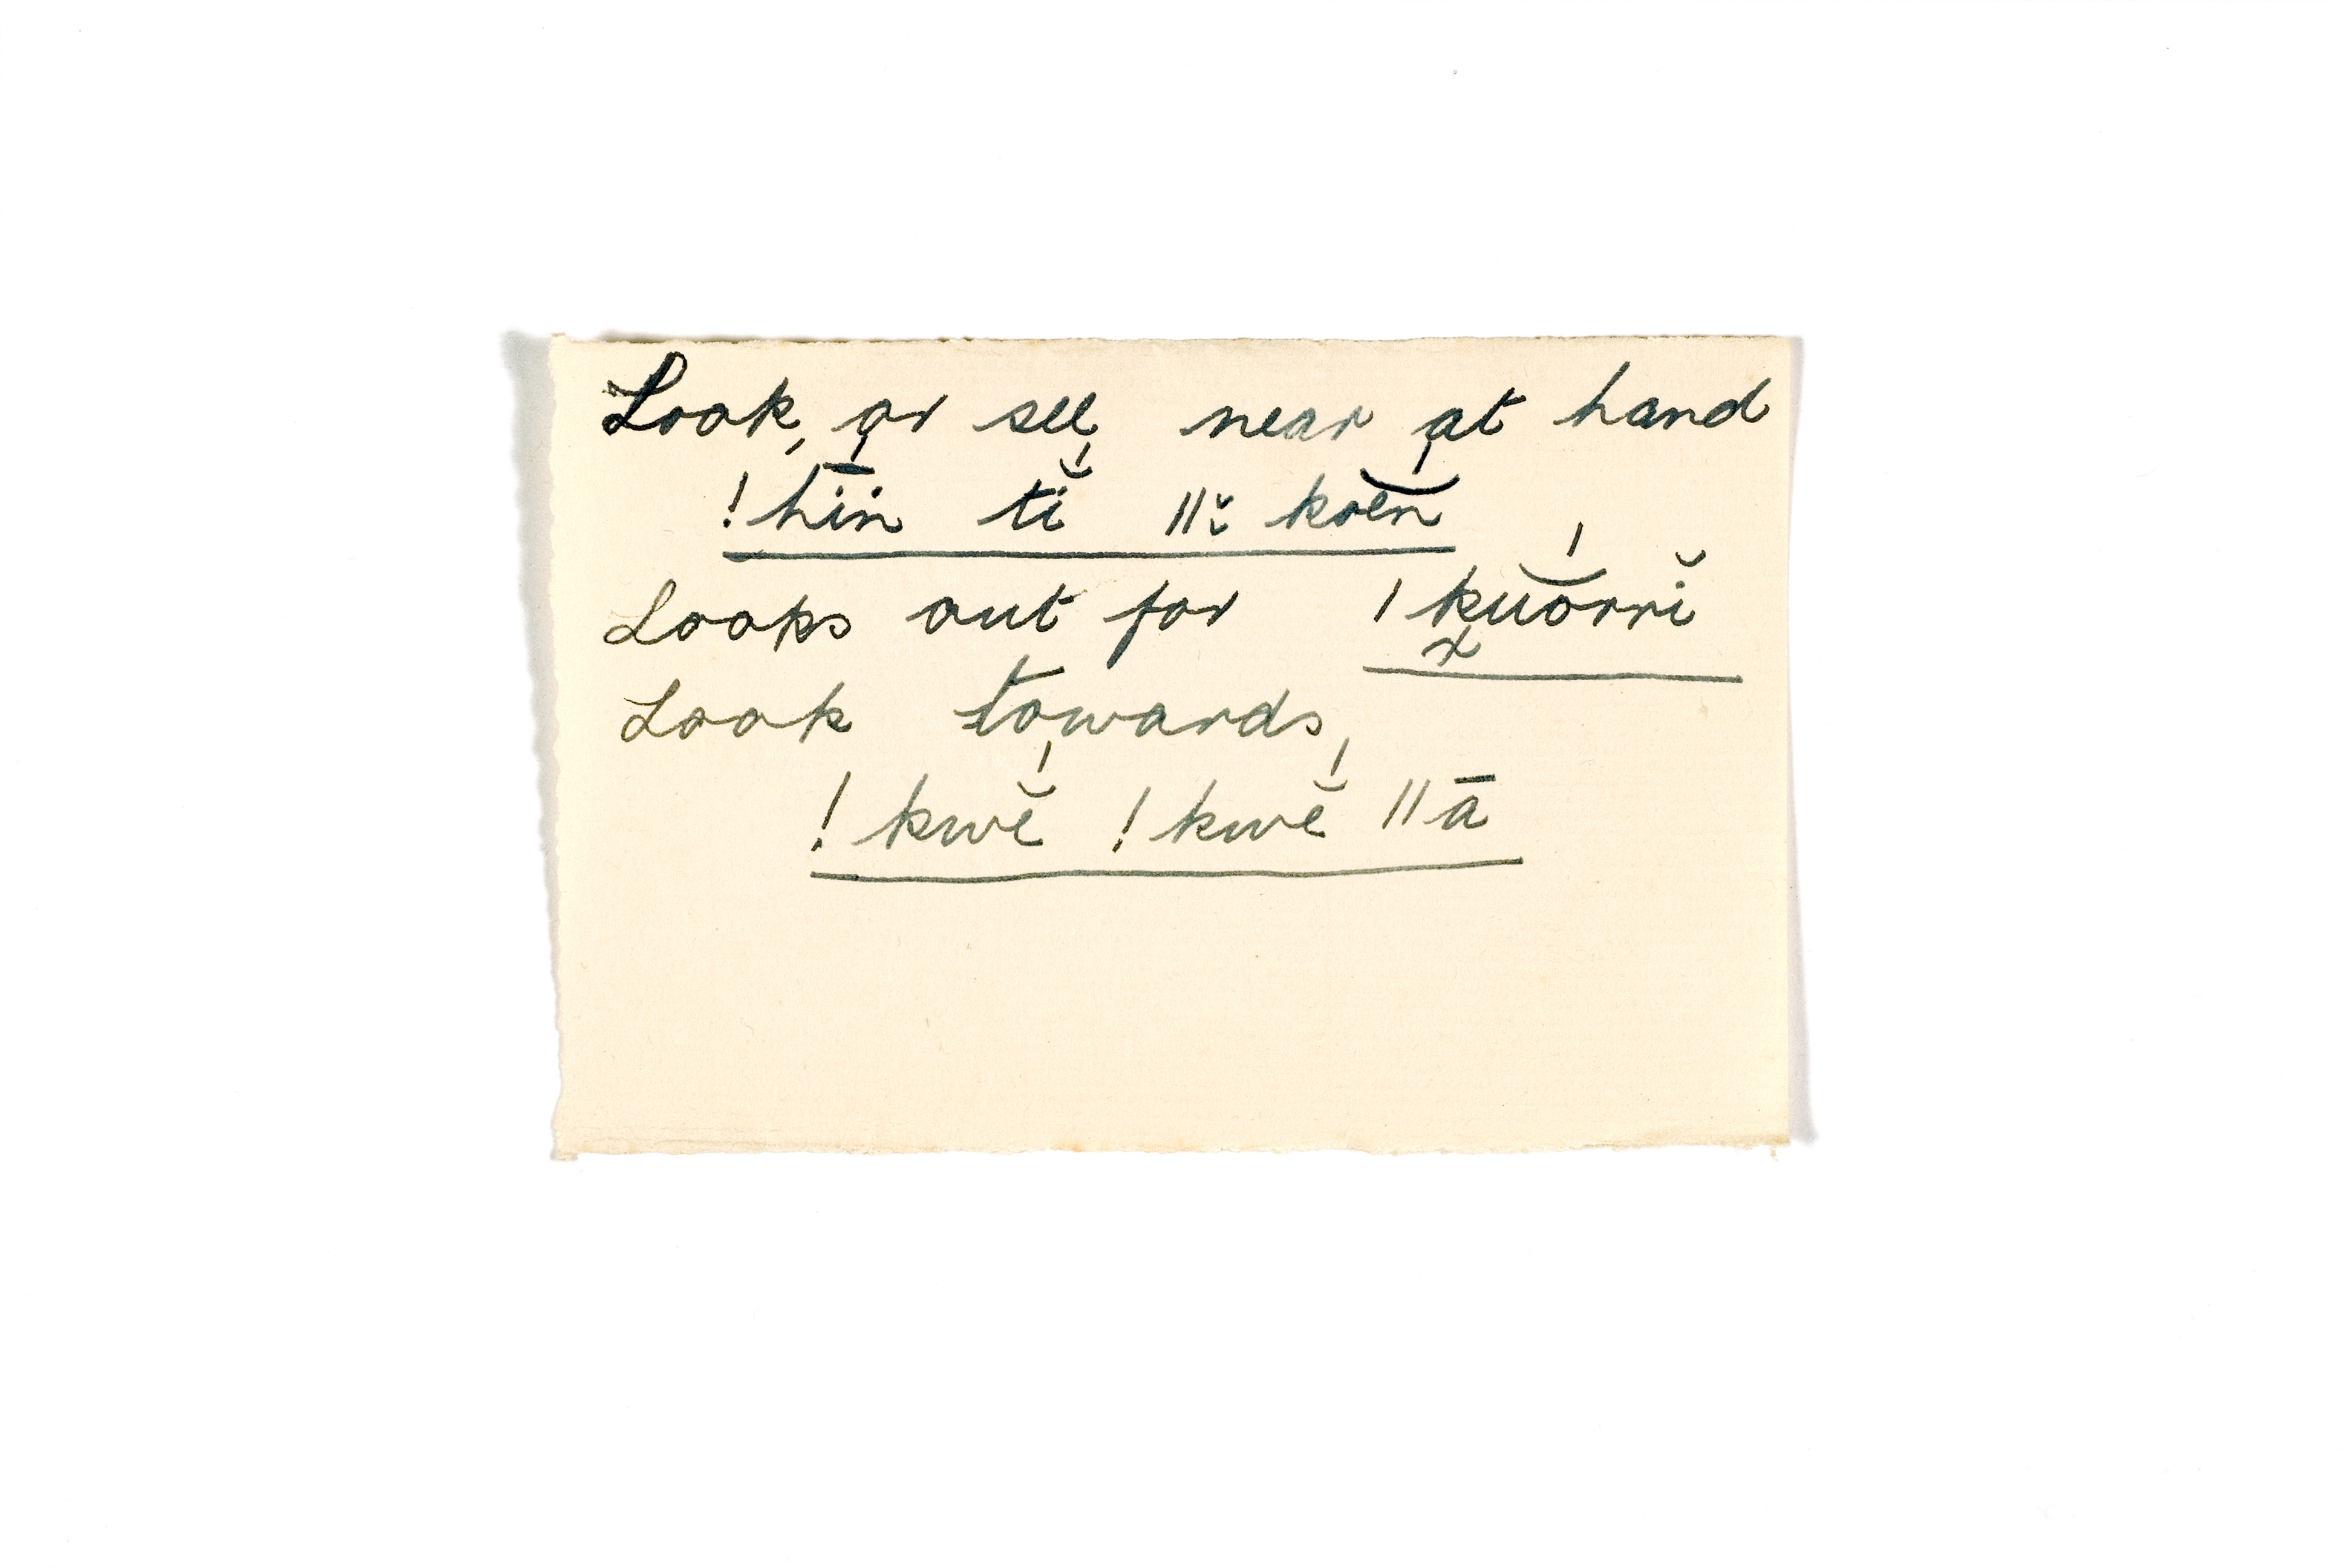 Look, or see, near at hand
!hī́in tĭ́ ǁ˘̬ koĕ́n
Looks out for ǀkuŏ́rrĭ
x
Look towards,
!kwĕ́ !kwĕ́ ǁā